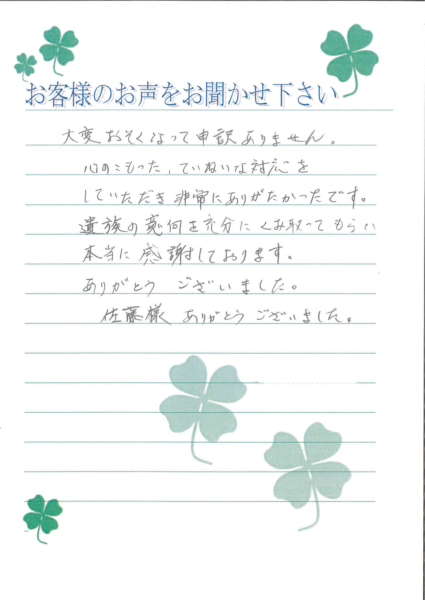 お客様のお声をお聞かせ下さい
大変おそくなって申訳ありません。
心のこもった、ていねいな対応を
していただき非常にありがたかったです。
遺族の意向を充分にくみ取ってもらい
本当に感謝しております。
ありがとう ございました。
佐藤様 ありがとう ございました。